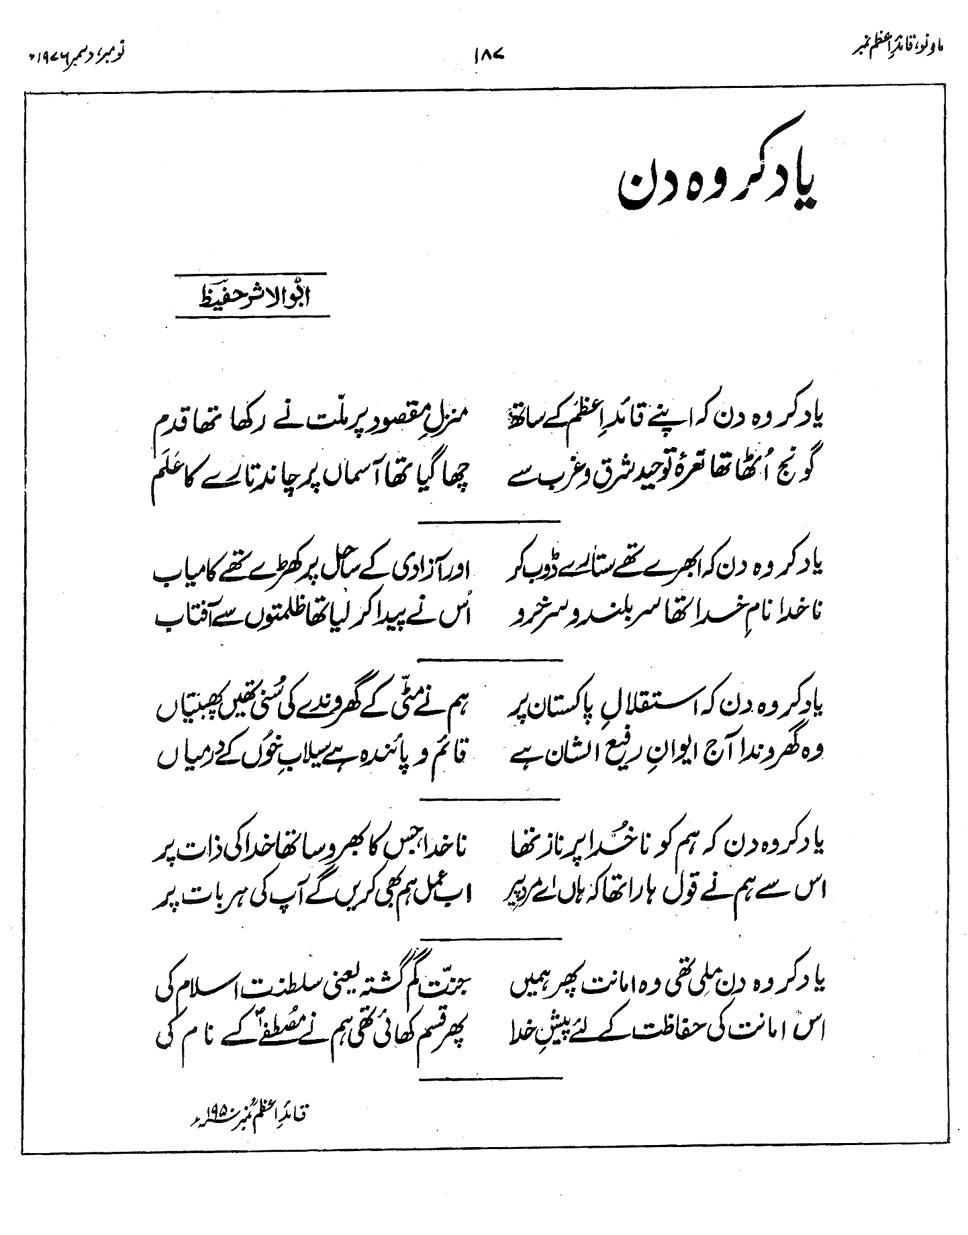 ماہ نو، قائدِ اعظم نمبر
۱۸۷
نومبر، دسمبر ۱۹۷۶ء
یاد کر وہ دن
ابوالاثر حفیظ
یاد کر وہ دن کہ اپنے قائدِ اعظم کے ساتھ منزلِ مقصود پر ملّت نے رکھا تھا قدم
گونج اُٹھا تھا نعرۂ توحید شرق و غرب سے چھا گیا تھا آسماں پر چاند تارے کا عَلَم
یاد کر وہ دن کہ ابھرے تھے ستارے ڈوب کر اور آزادی کے ساحل پر کھڑے تھے کامیاب
ناخدا نامِ خدا تھا سر بلند و سرخرو اُس نے پیدا کر لیا تھا ظلمتوں سے آفتاب
یاد کر وہ دن کہ استقلالِ پاکستان پر ہم نے مٹّی کے گھروندے کی سُنی تھیں پھبتیاں
وہ گھروندا آج ایوانِ رفیع الشان ہے قائم و پائندہ ہے سیلابِ خُوں کے درمیاں
یاد کر وہ دن کہ ہم کو ناخُدا پر ناز تھا ناخدا، جس کا بھروسا تھا خدا کی ذات پر
اس سے ہم نے قول ہارا تھا کہ ہاں اے مردِ پیر اب عمل ہم بھی کریں گے آپ کی ہر بات پر
یاد کر وہ دن ملی تھی وہ امانت پھر ہمیں جنّتِ گم گشتہ یعنی سلطنت اسلام کی
اس امانت کی حفاظت کے لئے پیشِ خدا پھر قسم کھائی تھی ہم نے مُصطفےٰؐ کے نام کی
قائدِ اعظم نمبر ۱۹۵۰ء